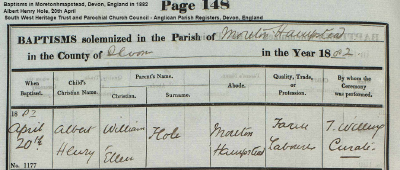 Baptisms in Moretonhmapstead, Devon, England in 1882
Page 148
Albert Henry Hole, 20th April
South West Heritage Trust and Parochial Church Council - Anglican Parish Registers, Devon, England
BAPTISMS solemnized in the Parish of Moreton Hampstead
in the County of Devon in the Year 1882
When Baptized. Child's Christian Name. Parent's Name. Christian. Surname. Abode. Quality, Trade, or Profession. By whom the Ceremony was performed.
1882
April Albert William Hole Moreton Farm
20th Henry Ellen Hampstead Labourer Curate
No. 1177